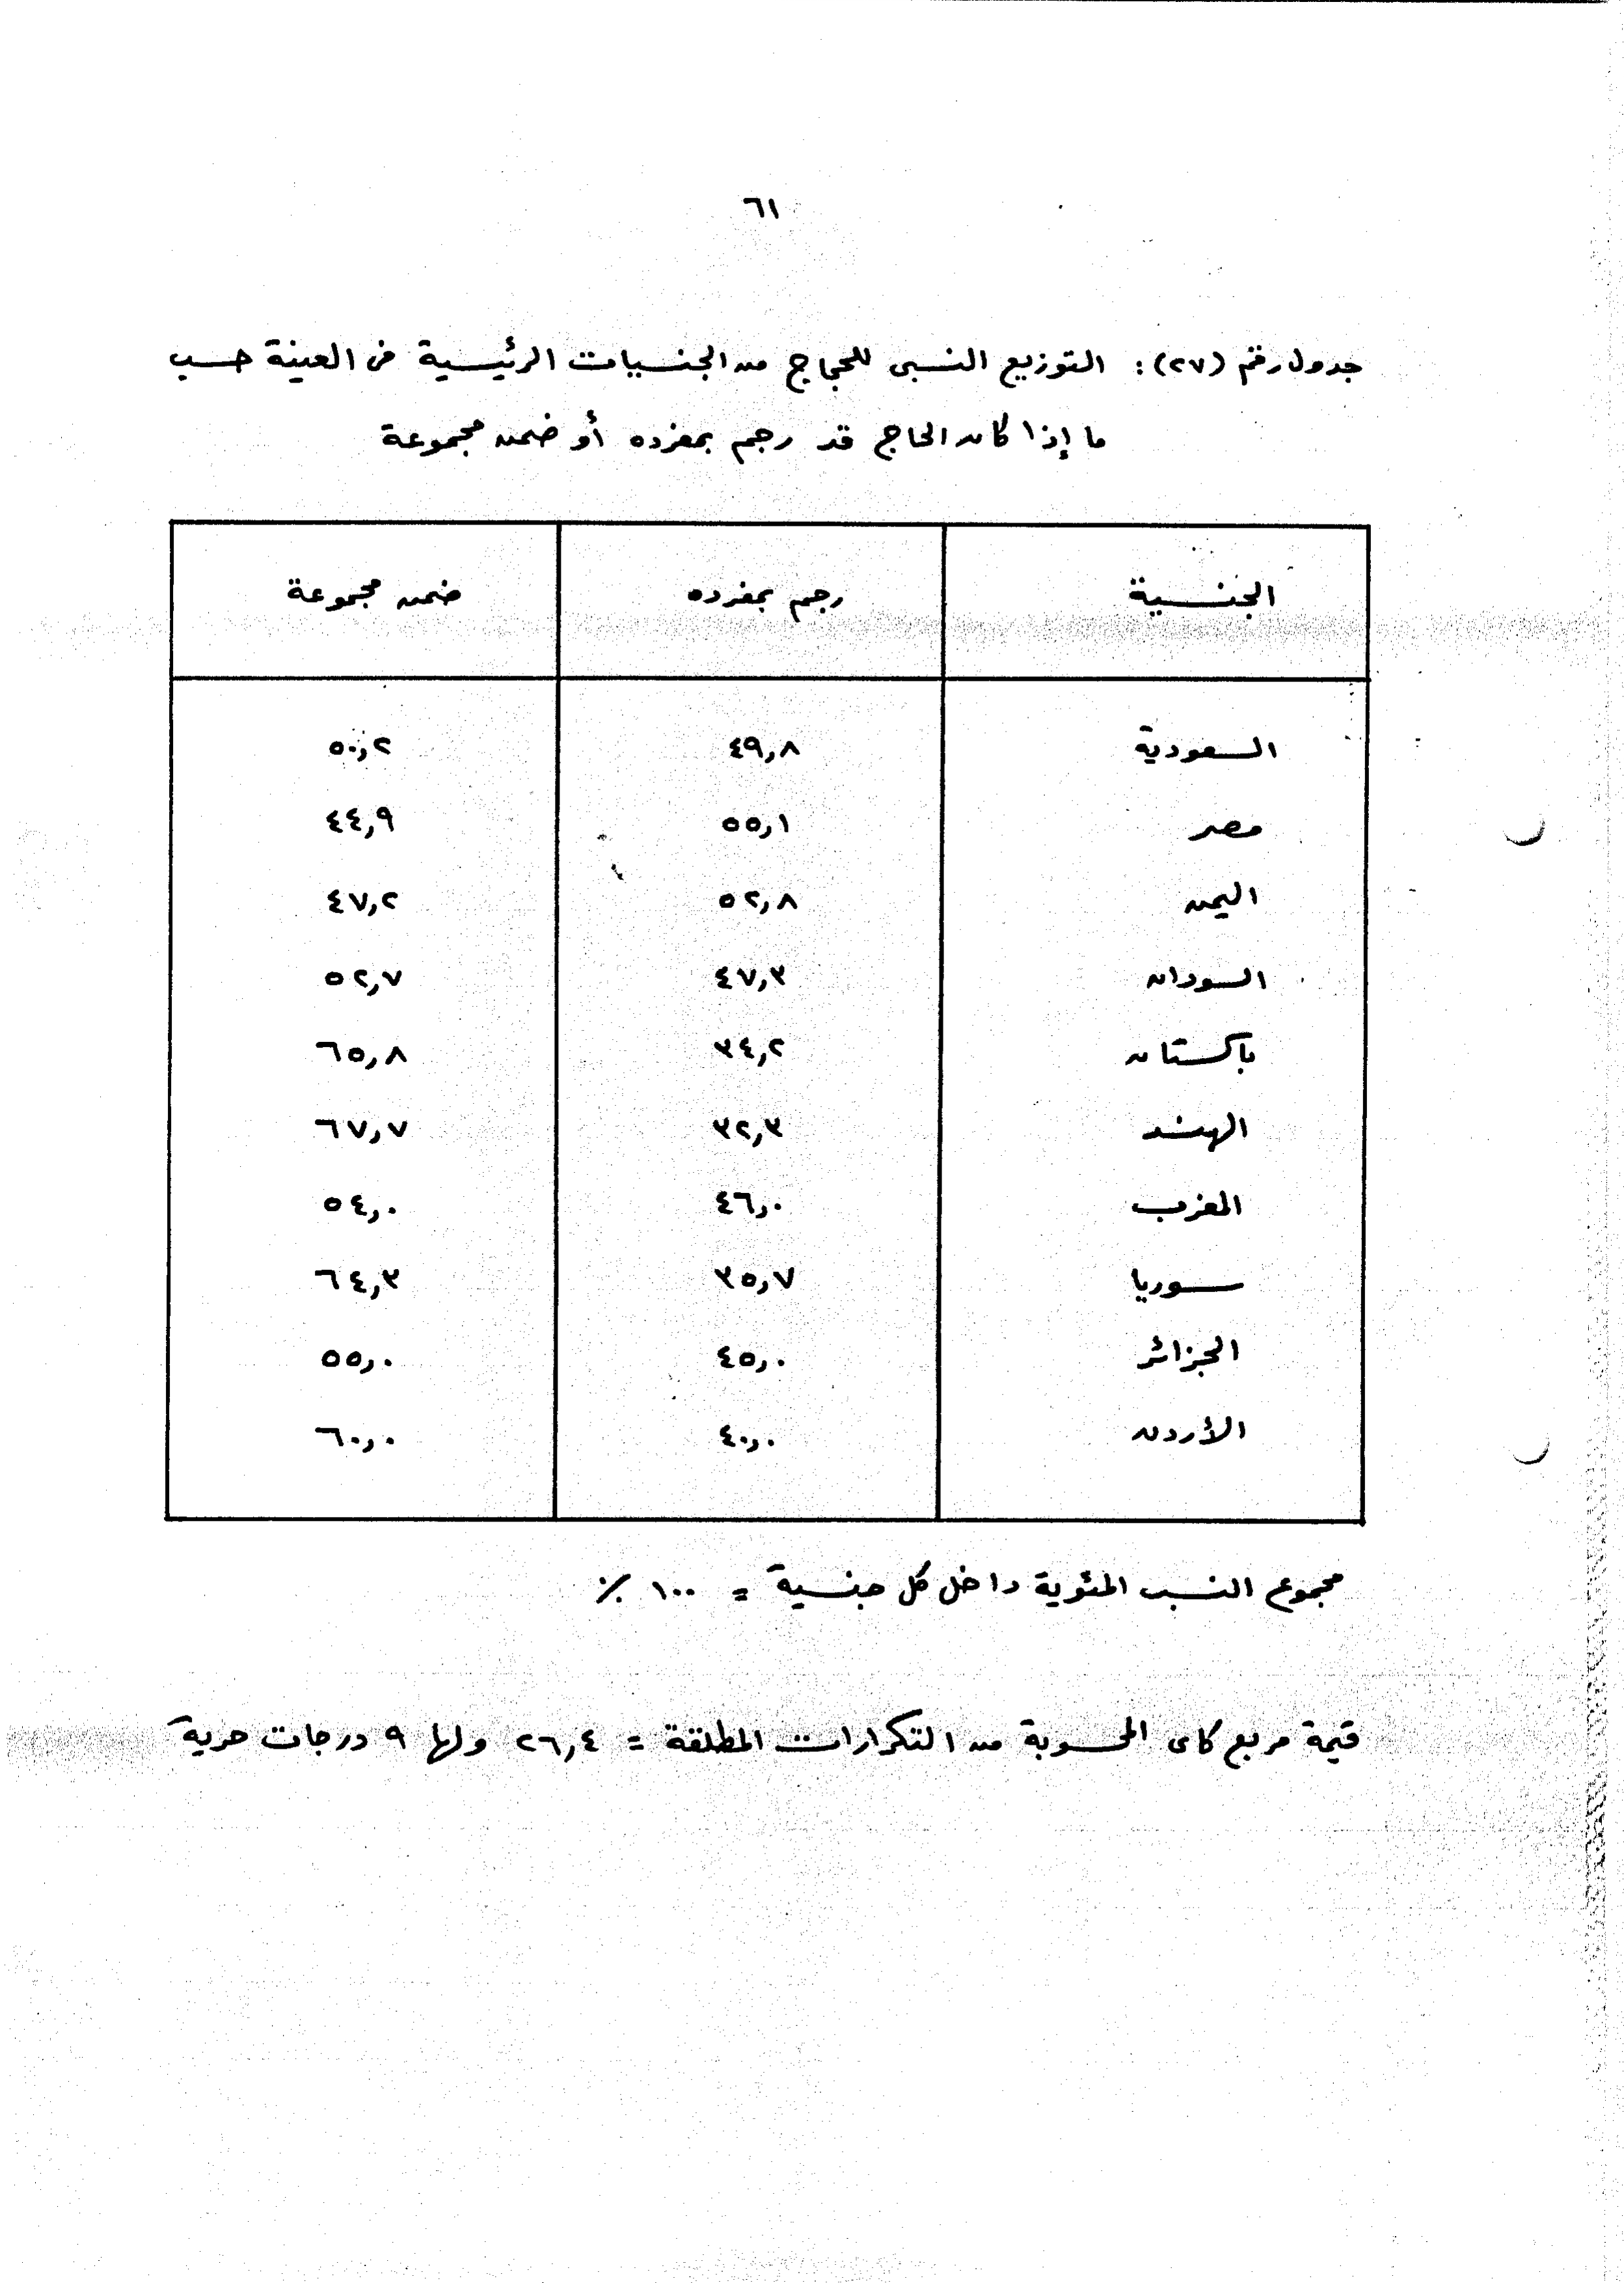 ٦١
جدول رقم (٢٧): التوزيع النسبى للحجاج من الجنسيات الرئيسية فى العينة حسب
ما إذا كان الحاج قد رجم بمفرده أو ضمن مجموعة
الجنسية رجم بمفرده ضمن مجموعة
السعودية ٤٩,٨ ٥٠,٢
مصر ٥٥,١ ٤٤,٩
اليمن ٥٢,٨ ٤٧,٢
السودان ٤٧,٣ ٥٢,٧
باكستان ٣٤,٢ ٦٥,٨
الهند ٣٢,٣ ٦٧,٧
المغرب ٤٦,٠ ٥٤,٠
سوريا ٣٥,٧ ٦٤,٣
الجزائر ٤٥,٠ ٥٥,٠
الأردن ٤٠,٠ ٦٠,٠
مجموع النسب المئوية داخل كل جنسية = ١٠٠ ٪
قيمة مربع كاى المحسوبة من التكرارات المطلقة = ٢٦,٤ ولها ٩ درجات حرية